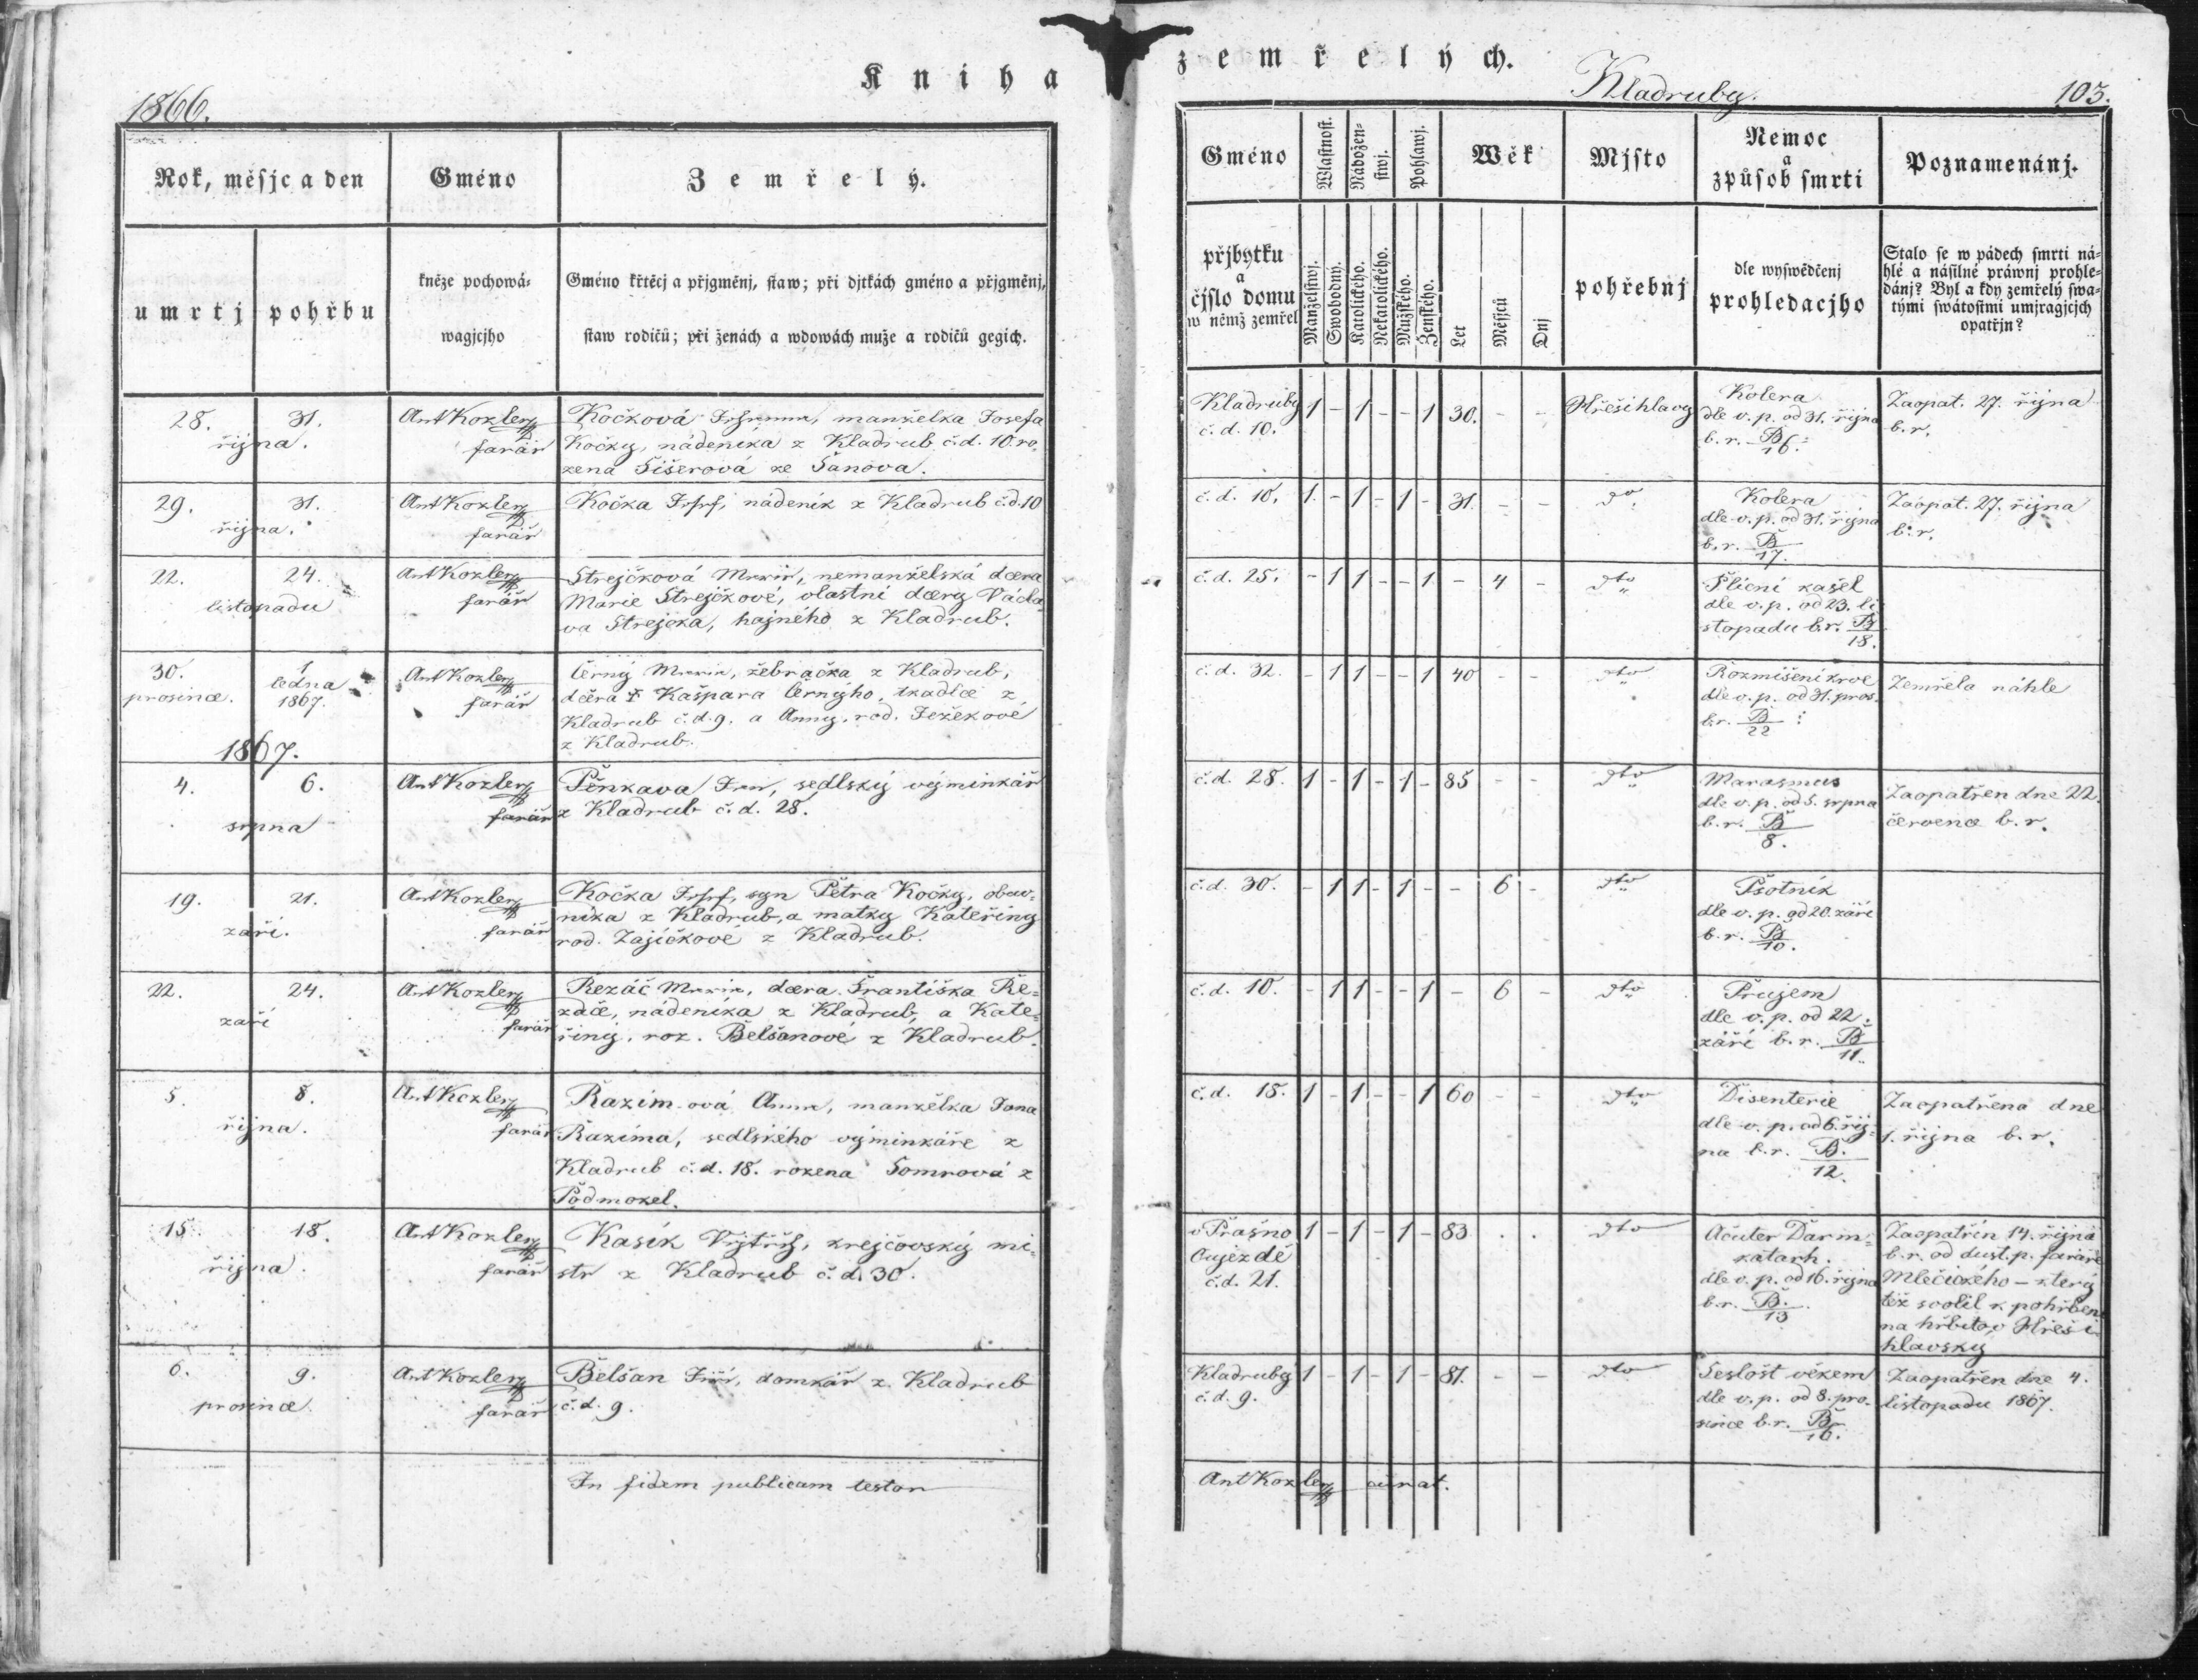 Kniha zemřelých.
1866.
Kladruby.
103.
Rok, měsjc a den
Gméno
Zemřelý.
umrtj
pohřbu
kněze pochowá-
wagjcjho
Gméno křtěcj a přjgměnj, staw; při djtkách gméno a přjgměnj,
staw rodičů; při ženách a wdowách muže a rodičů gegich.
Gméno
Wlastnost.
Nábožen-
stwj.
Pohlawj.
Wěk
Mjsto
Nemoc
a
způsob smrti
Poznamenánj.
přjbytku
a
čjslo domu
w němž zemřel
Manželstwj.
Swobodný.
Katolického.
Nekatolického.
Mužského.
Ženského.
Let
Měsjců
Dnj
pohřebnj
dle wyswědčenj
prohledacjho
Stalo se w pádech smrti ná-
hlé a násilné práwnj prohle-
dánj? Byl a kdy zemřelý swa-
tými swátostmi umjragjcjch
opatřjn?
28. 31.
řijna.
Ant Kozler
farář
Kočková manželka Josefa
Kočky, nádenika z Kladrub č.d. 10. ro-
zená Šišerová ze Šanova.
Kladruby
č.d. 10.
1 - 1 - - 1 30. - -
Hřešihlavy
Kolera
dle v. p. od 31. řijna
b.r. B/16.
Zaopat. 27. řijna
b.r.
29. 31.
řijna.
Ant Kozler
farář
Kočka Josef, nádeník z Kladrub č.d. 10
č.d. 10. 1 - 1 - 1 - 31. - -
do
Kolera
dle v. p. od 31. řijna
b.r. B/17.
Zaopat. 27. řijna
b.r.
22. 24.
listopadu
Ant Kozler
farář
Strejčková Marie, nemanželská dcera
Marie Strejčkové, vlastní dcery Václa-
va Strejčka, hajného z Kladrub.
č.d. 25. - 1 1 - - 1 - 4 -
dto
kašel
dle v. p. od 23. li
stopadu b.r. B/18.
30. 1
prosince. ledna
1867.
Ant Kozler
farář
Černý Marie, žebračka z Kladrub,
dcera † Kašpara Černýho, tkadlce z
Kladrub č.d. 9. a Anny, rod. Ježekové
z Kladrub.
č.d. 32. - 1 1 - - 1 40 - -
dto
Rozmišení krve
dle v. p. od 31. pros.
b.r. B/22
Zemřela náhle
1867.
4. 6.
srpna
Ant Kozler
farář
Pěnkava Jan, sedlský výminkář
z Kladrub č.d. 28.
č.d. 28. 1 - 1 - 1 - 85 - -
dto
Marasmus
dle v. p. od 5. srpna
b.r. B/8.
Zaopatřen dne 22.
července b.r.
19. 21.
září.
Ant Kozler
farář
Kočka Josef, syn Petra Kočky, obuv-
níka z Kladrub, a matky Kateřiny
rod. Zajíčkové z Kladrub.
č.d. 30. - 1 1 - 1 - - 6 -
dto
Psotník
dle v. p. od 20. září
b.r. B/10.
22. 24.
září
Ant Kozler
farář
Řezáč Marie, dcera Františka Ře-
záče, nádeníka z Kladrub, a Kate-
řiny, roz. Belšanové z Kladrub.
č.d. 10. - 1 1 - - 1 - 6 -
dto
Průjem
dle v. p. od 22.
září b.r. B/11.
5. 8.
řijna.
Ant Kozler
farář
Razimová Anna, manželka Jana
Razima, sedlského výminkáře z
Kladrub č.d. 18. rozena Somrová z
Podmokel.
č.d. 18. 1 - 1 - - 1 60 - -
dto
Disenterie
dle v. p. od 6. řij-
na b.r. B./12.
Zaopatřena dne
1. řijna b.r.
15 18.
řijna.
Ant Kozler
farář
Kasík Vojtěch, krejčovský mi-
str z Kladrub č.d. 30.
v Prašno
Oujezdě
č.d. 21.
1 - 1 - 1 - 83 . .
dto
Acuter Darm-
katarh.
dle v. p. od 16. řijna
b.r. B./13
Zaopatřin 14. řijna
b.r. od dust. p. faráře
Mlečického - který
též svolil k pohřbení
na hřbitov Hřeši
hlavský
6. 9.
prosince.
Ant Kozler
farář
Belšan Jiří, domkář z Kladrub
č.d. 9.
Kladruby
č.d. 9.
1 - 1 - 1 - 81. - -
dto
Sešlost věkem
dle v. p. od 8. pro-
since b.r. B/16.
Zaopatřen dne 4.
listopadu 1867.
In fidem publicam testor
Ant Kozler curat.